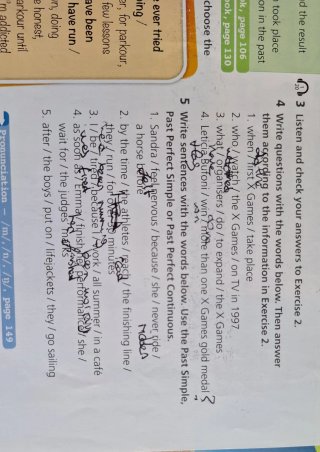 nd the result
t took place
on in the past
ok, page 106
ok, page 130
choose the
e ever tried
ning /
er, for parkour,
few lessons
ave been
have run /
n, doing
e honest,
arkour until
m addicted
3 Listen and check your answers to Exercise 2.
4 Write questions with the words below. Then answer
them according to the information in Exercise 2.
1. when / first X Games / take place
2. who / watch / the X Games / on TV in 1997
3. what / organisers / do / to expand / the X Games
4. Leticia Bufoni / win / more than one X Games gold medal ?
5 Write sentences with the words below. Use the Past Simple,
Past Perfect Simple or Past Perfect Continuous.
1. Sandra / feel nervous / because / she / never ride /
a horse before
riden
2. by the time / the athletes / reach / the finishing line /
they / run / for minutes
3. I / be / tired / because / I / work / all summer / in a café
4. as soon as / Emma / finish / performance / she /
wait for / the judges' marks
5. after / the boys / put on / lifejackets / they / go sailing
Pronunciation – /m/, /n/, /ŋ/, page 149